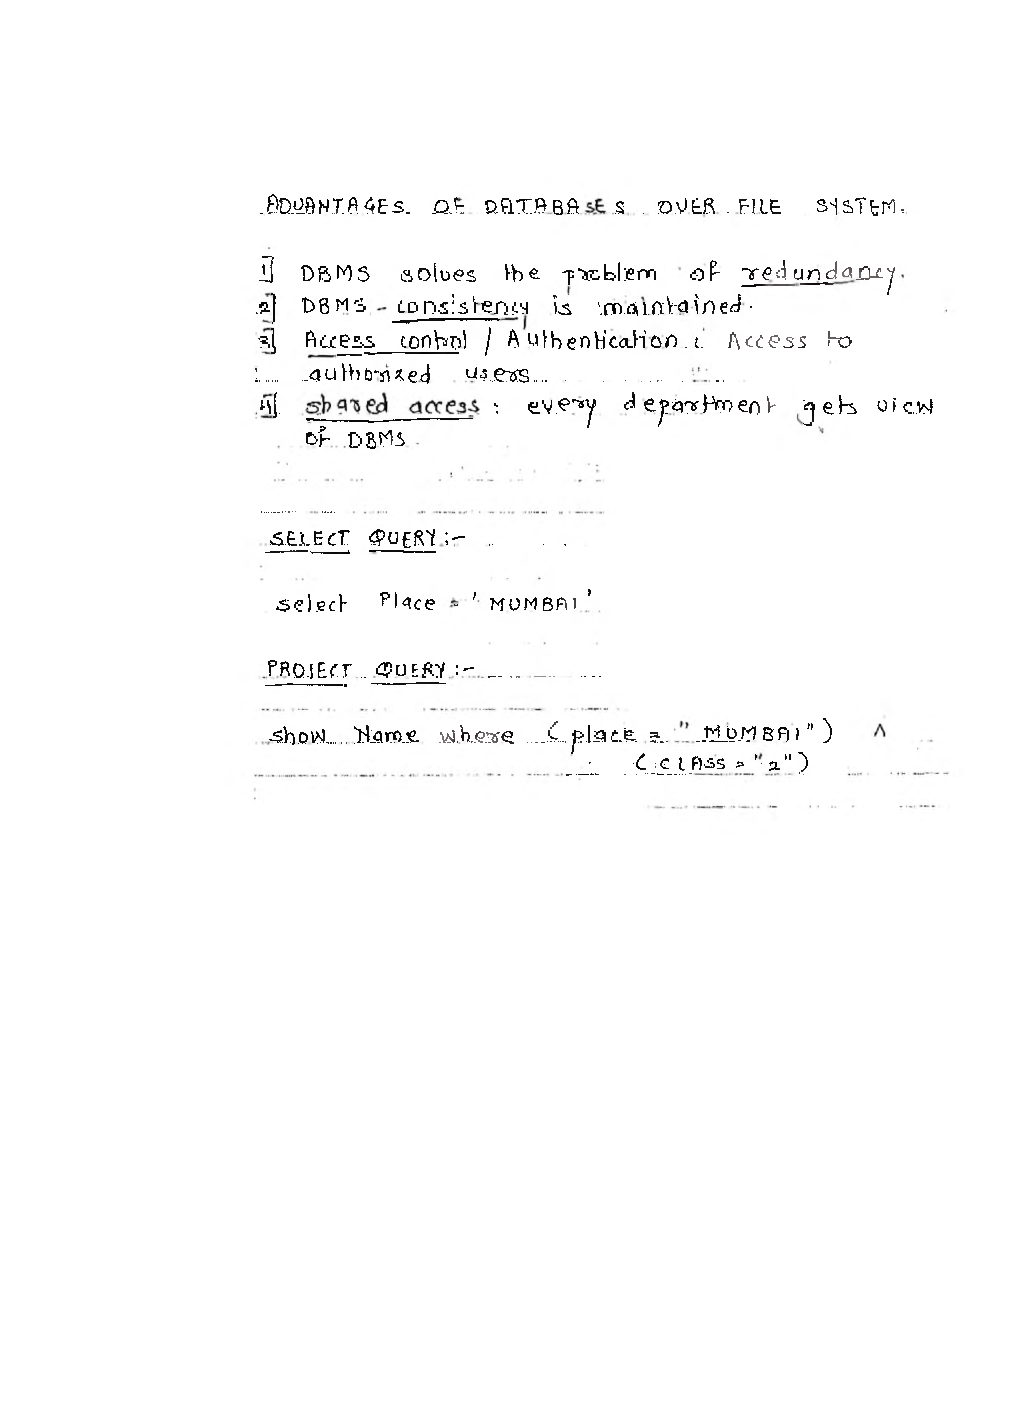 ADVANTAGES OF DATABASES OVER FILE SYSTEM.
1] DBMS solves the problem of redundancy.
2] DBMS - consistency is maintained.
3] Access control / Authentication : Access to
authorized users
4] shared access : every department gets view
of DBMS
SELECT QUERY :-
select Place = 'MUMBAI'
PROJECT QUERY :-
show Name where (place = "MUMBAI") ∧
(CLASS = "2")